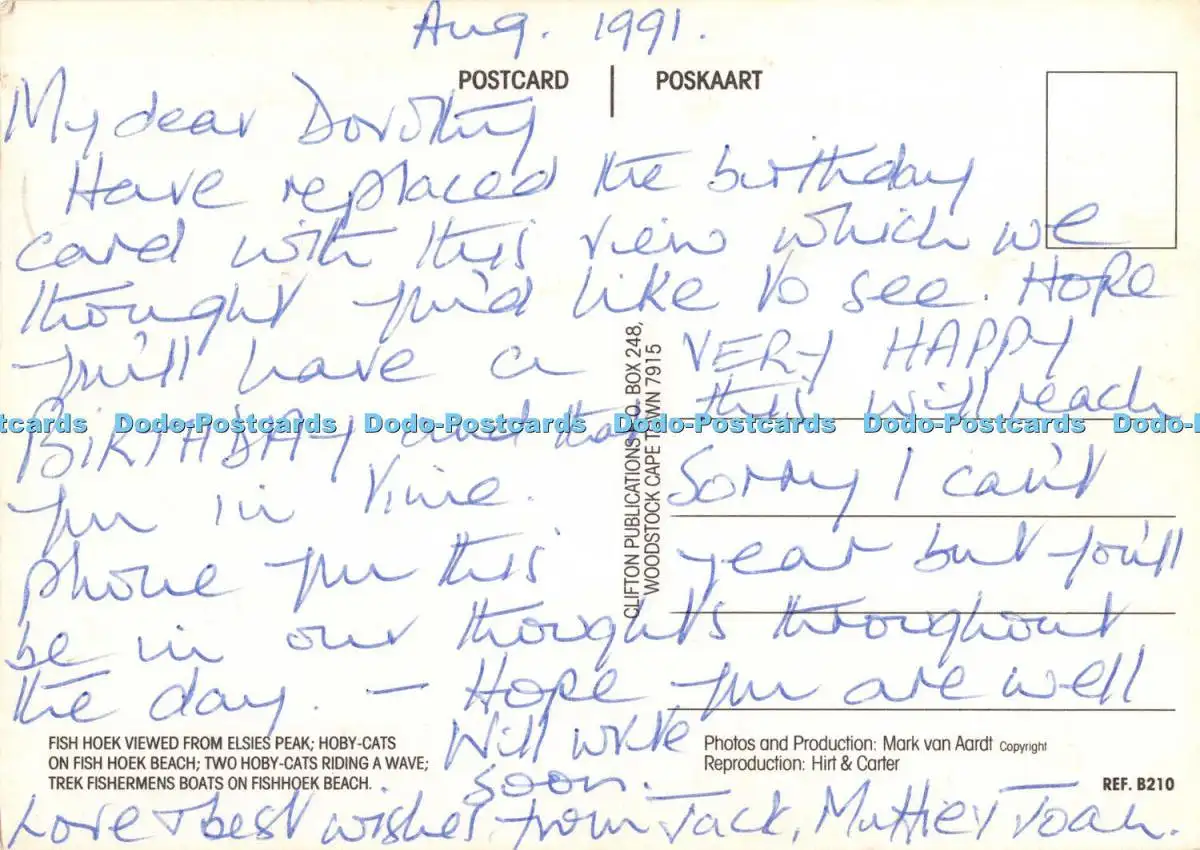 Aug. 1991.
POSTCARD | POSKAART
My dear Dorothy
Have replaced the birthday
card with this view which we
thought you'd like to see. Hope
you'll have a VERY HAPPY
BIRTHDAY and that this will reach
you in time. Sorry I can't
phone you this year but you'll
be in our thoughts throughout
the day. — Hope you are well
Will write
soon.
Love & best wishes from Jack, Muttie, Joan.
CLIFTON PUBLICATIONS P.O. BOX 248,
WOODSTOCK CAPE TOWN 7915
FISH HOEK VIEWED FROM ELSIES PEAK; HOBY-CATS
ON FISH HOEK BEACH; TWO HOBY-CATS RIDING A WAVE;
TREK FISHERMENS BOATS ON FISHHOEK BEACH.
Photos and Production: Mark van Aardt Copyright
Reproduction: Hirt & Carter
REF. B210
Dodo-Postcards Dodo-Postcards Dodo-Postcards Dodo-Postcards